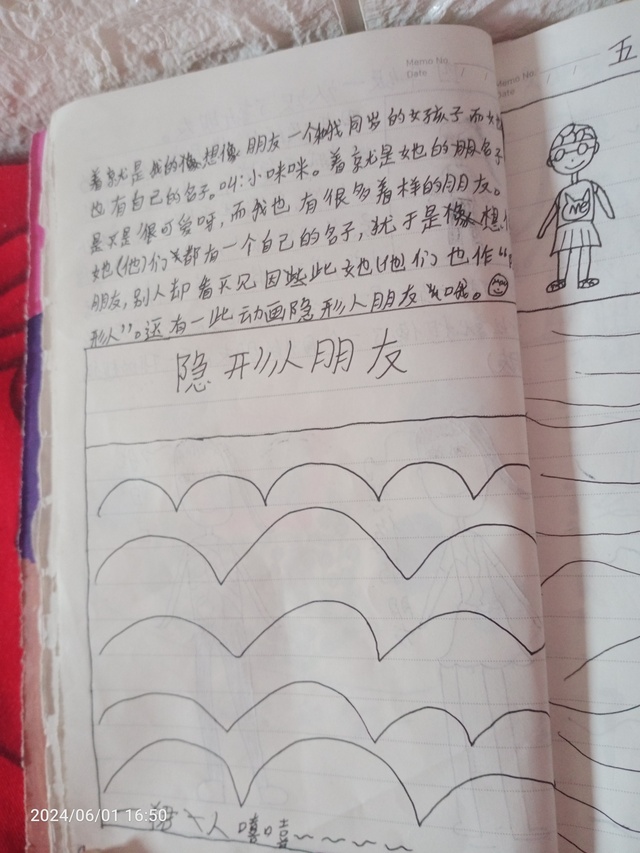 Memo No.
Date
着就是我的像想像朋友一个和我同岁的女孩子而她
也有自己的名子。叫:小咪咪。着就是她的朋名子
是不是很可爱呀,而我也有很多着样的朋友。
她(他)们都有一个自己的名子,犹于是想
朋友,别人却看不见因些此她(他们)也作“
形人”。还有一此动画隐形人朋友哦。
隐形人朋友
人嘻嘻~~~~~
2024/06/01 16:50
Memo No.
Date
五
ME